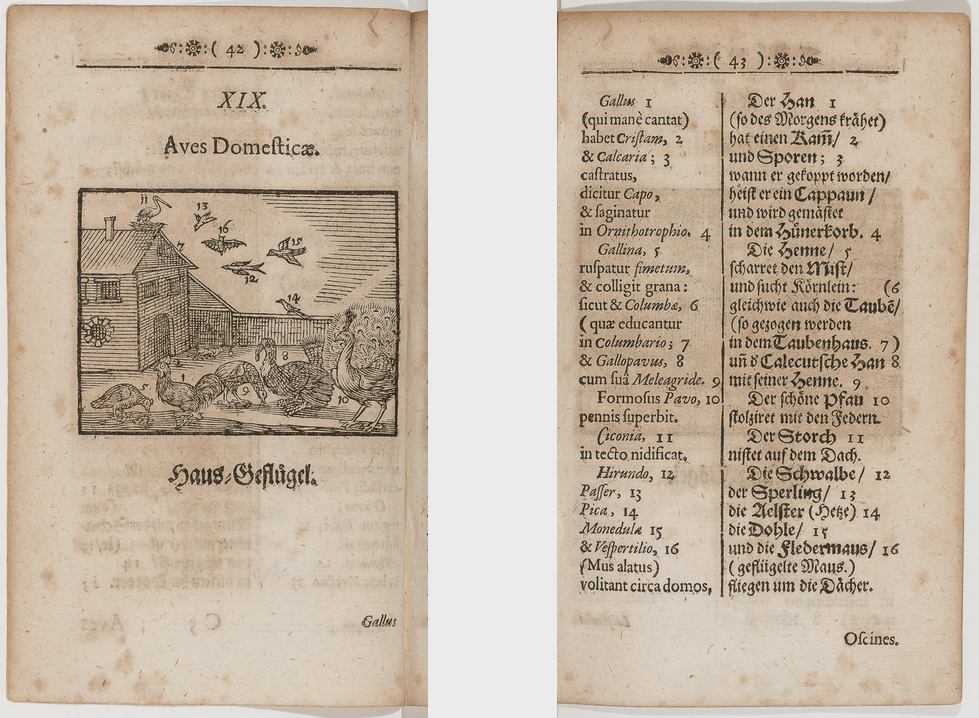 ( 42 )
XIX.
Aves Domesticæ.
11
13
16
15
7
12
14
8
5
1
9
10
Haus-Geflügel.
Gallus
( 43 )
Gallus 1
(qui manè cantat)
habet Cristam, 2
& Calcaria; 3
castratus,
dicitur Capo,
& saginatur
in Ornithotrophio. 4
Gallina, 5
ruspatur fimetum,
& colligit grana:
sicut & Columbæ, 6
( quæ educantur
in Columbario; 7
& Gallopavus, 8
cum suâ Meleagride. 9
Formosus Pavo, 10
pennis superbit.
Ciconia, 11
in tecto nidificat.
Hirundo, 12
Passer, 13
Pica, 14
Monedula 15
& Vespertilio, 16
(Mus alatus)
volitant circa domos,
Der Han 1
(so des Morgens krähet)
hat einen Kam̃/ 2
und Sporen; 3
wann er gekoppt worden/
heist er ein Cappaun /
und wird gemästet
in dem Hünerkorb. 4
Die Henne/ 5
scharret den Mist/
und sucht Körnlein: (6
gleichwie auch die Taubẽ/
(so gezogen werden
in dem Taubenhaus. 7 )
uñ d Calecutsche Han 8
mit seiner Henne. 9
Der schöne Pfau 10
stolziret mit den Federn.
Der Storch 11
nistet auf dem Dach.
Die Schwalbe/ 12
der Sperling/ 13
die Aelster (Hetze) 14
die Dohle/ 15
und die Fledermaus/ 16
( geflügelte Maus.)
fliegen um die Dächer.
Oscines.